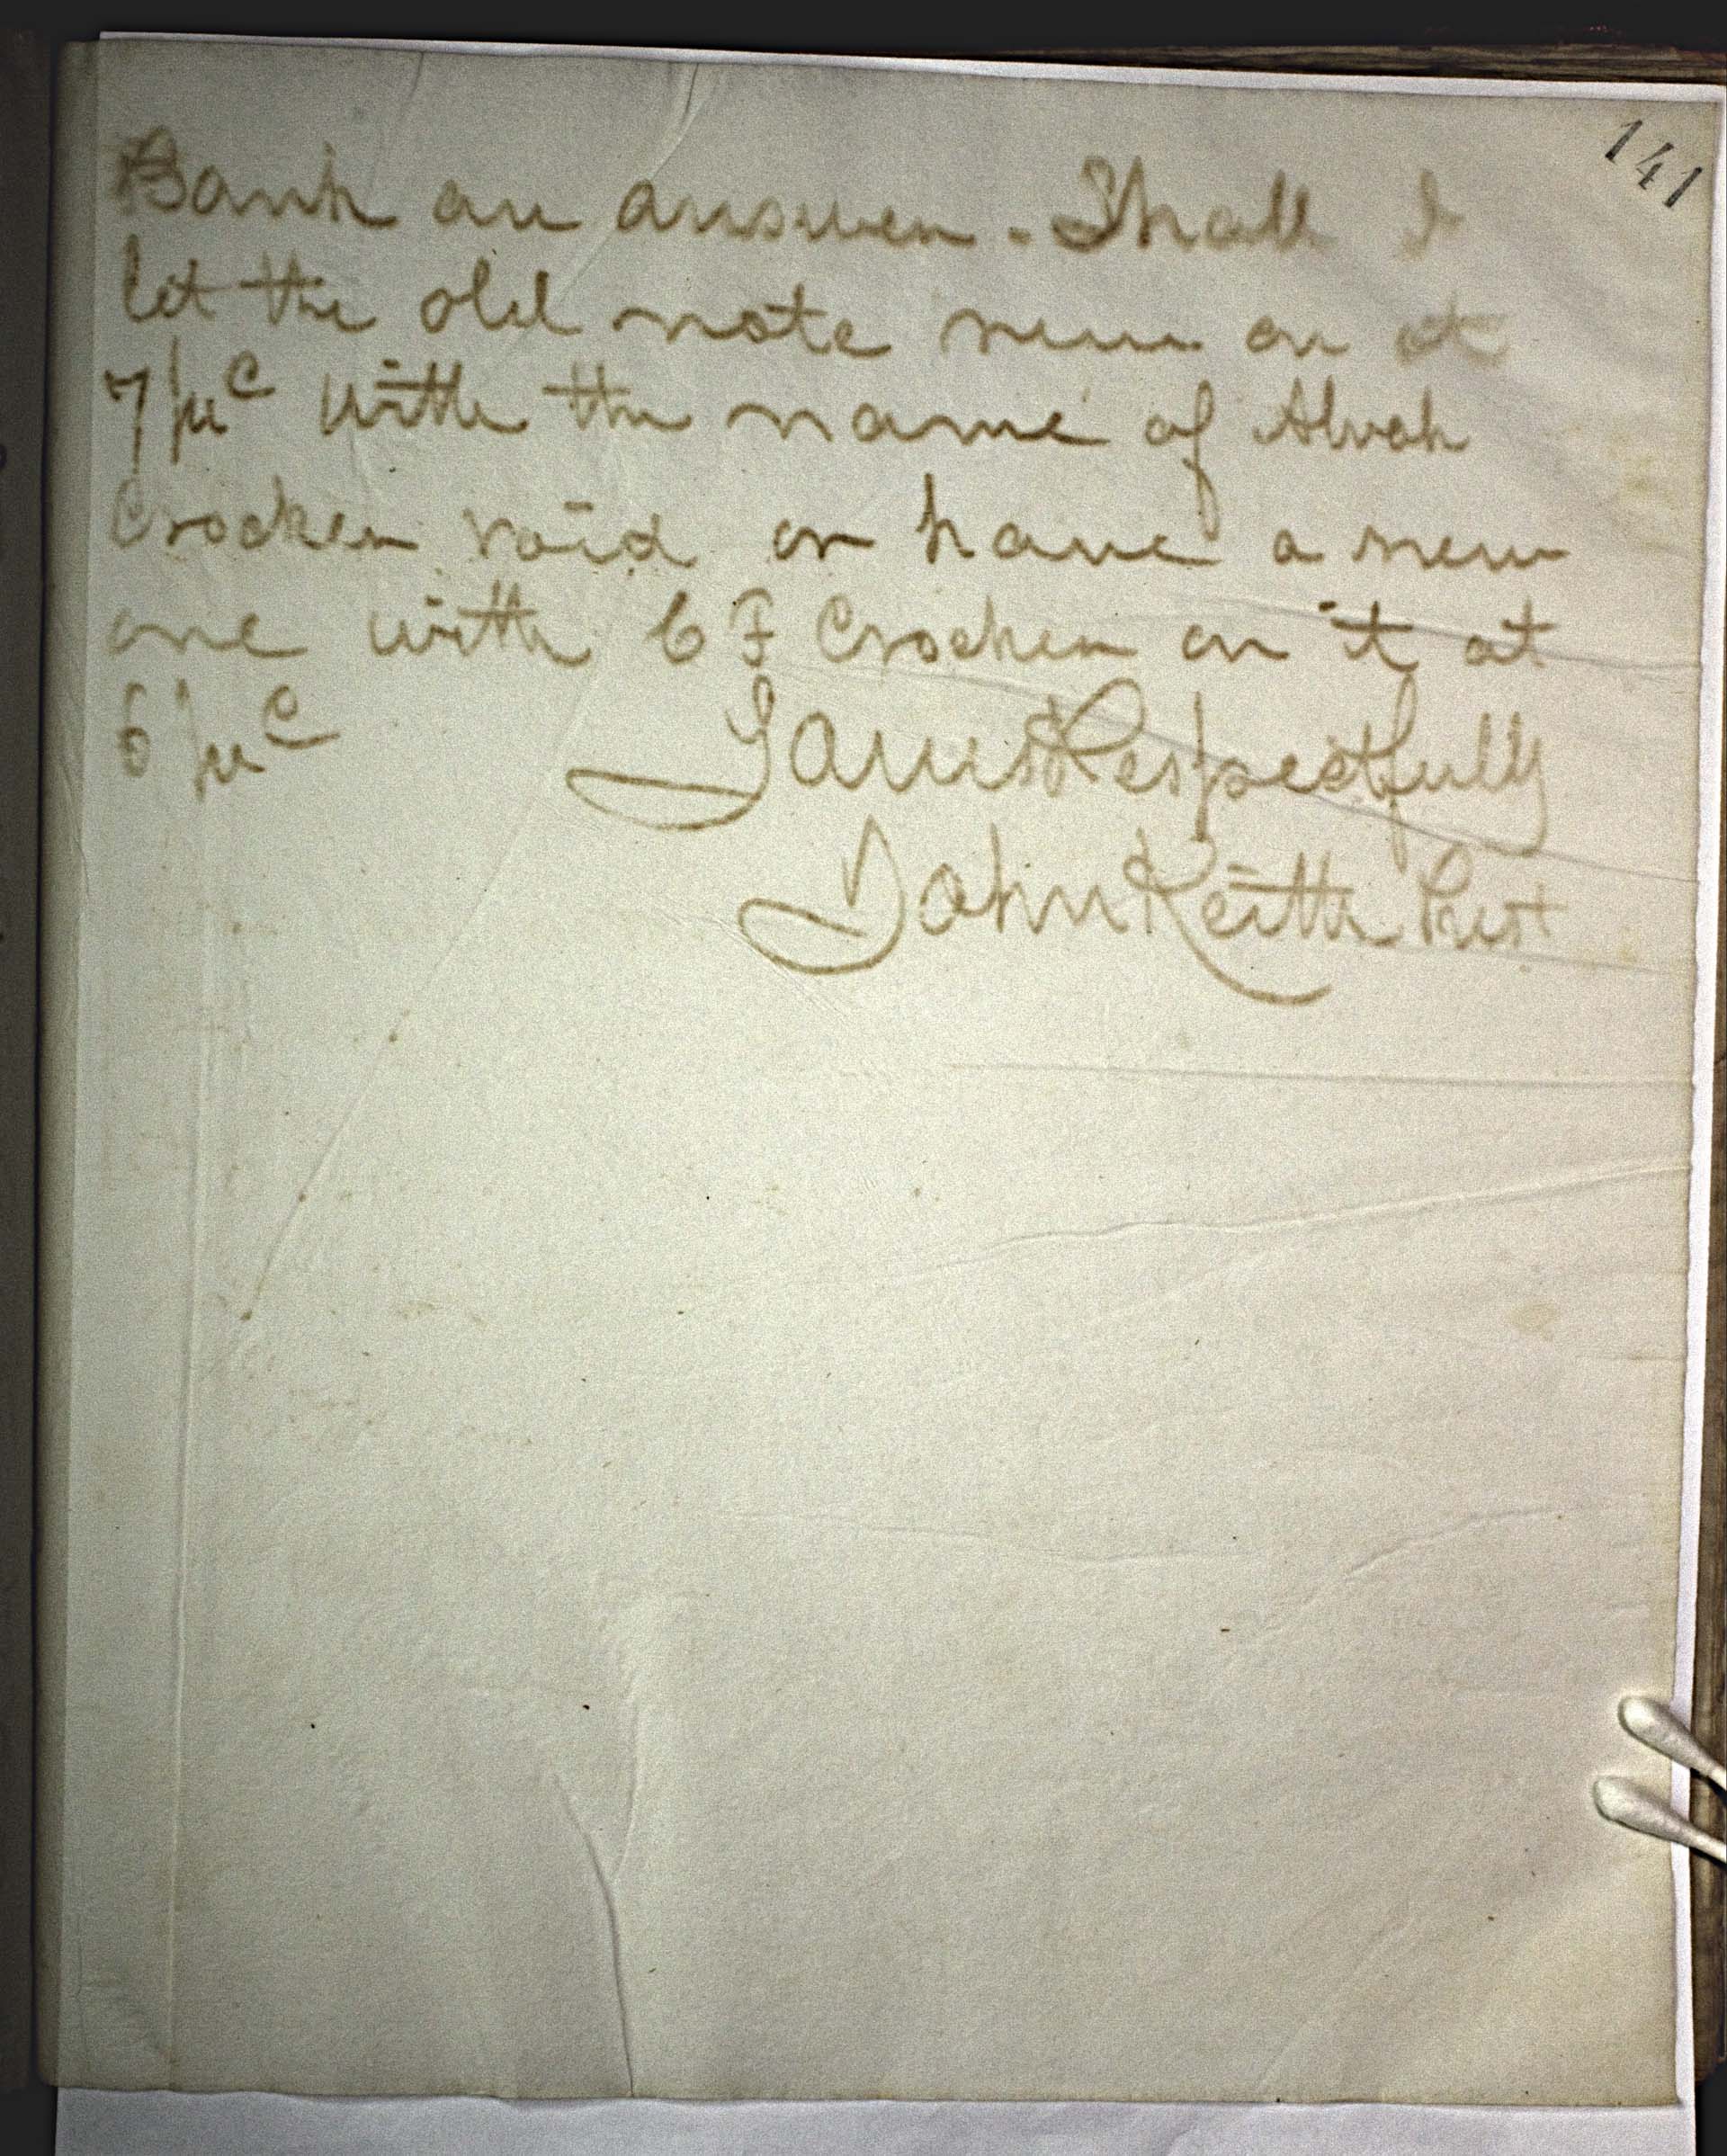 141
Bank an answer. Shall I
let the old note run on at
7 pr c with the name of Alvah
Crocker void or have a new
one with C F Crocker on it at
6 pr c Yours Respectfully
John Keith Prest